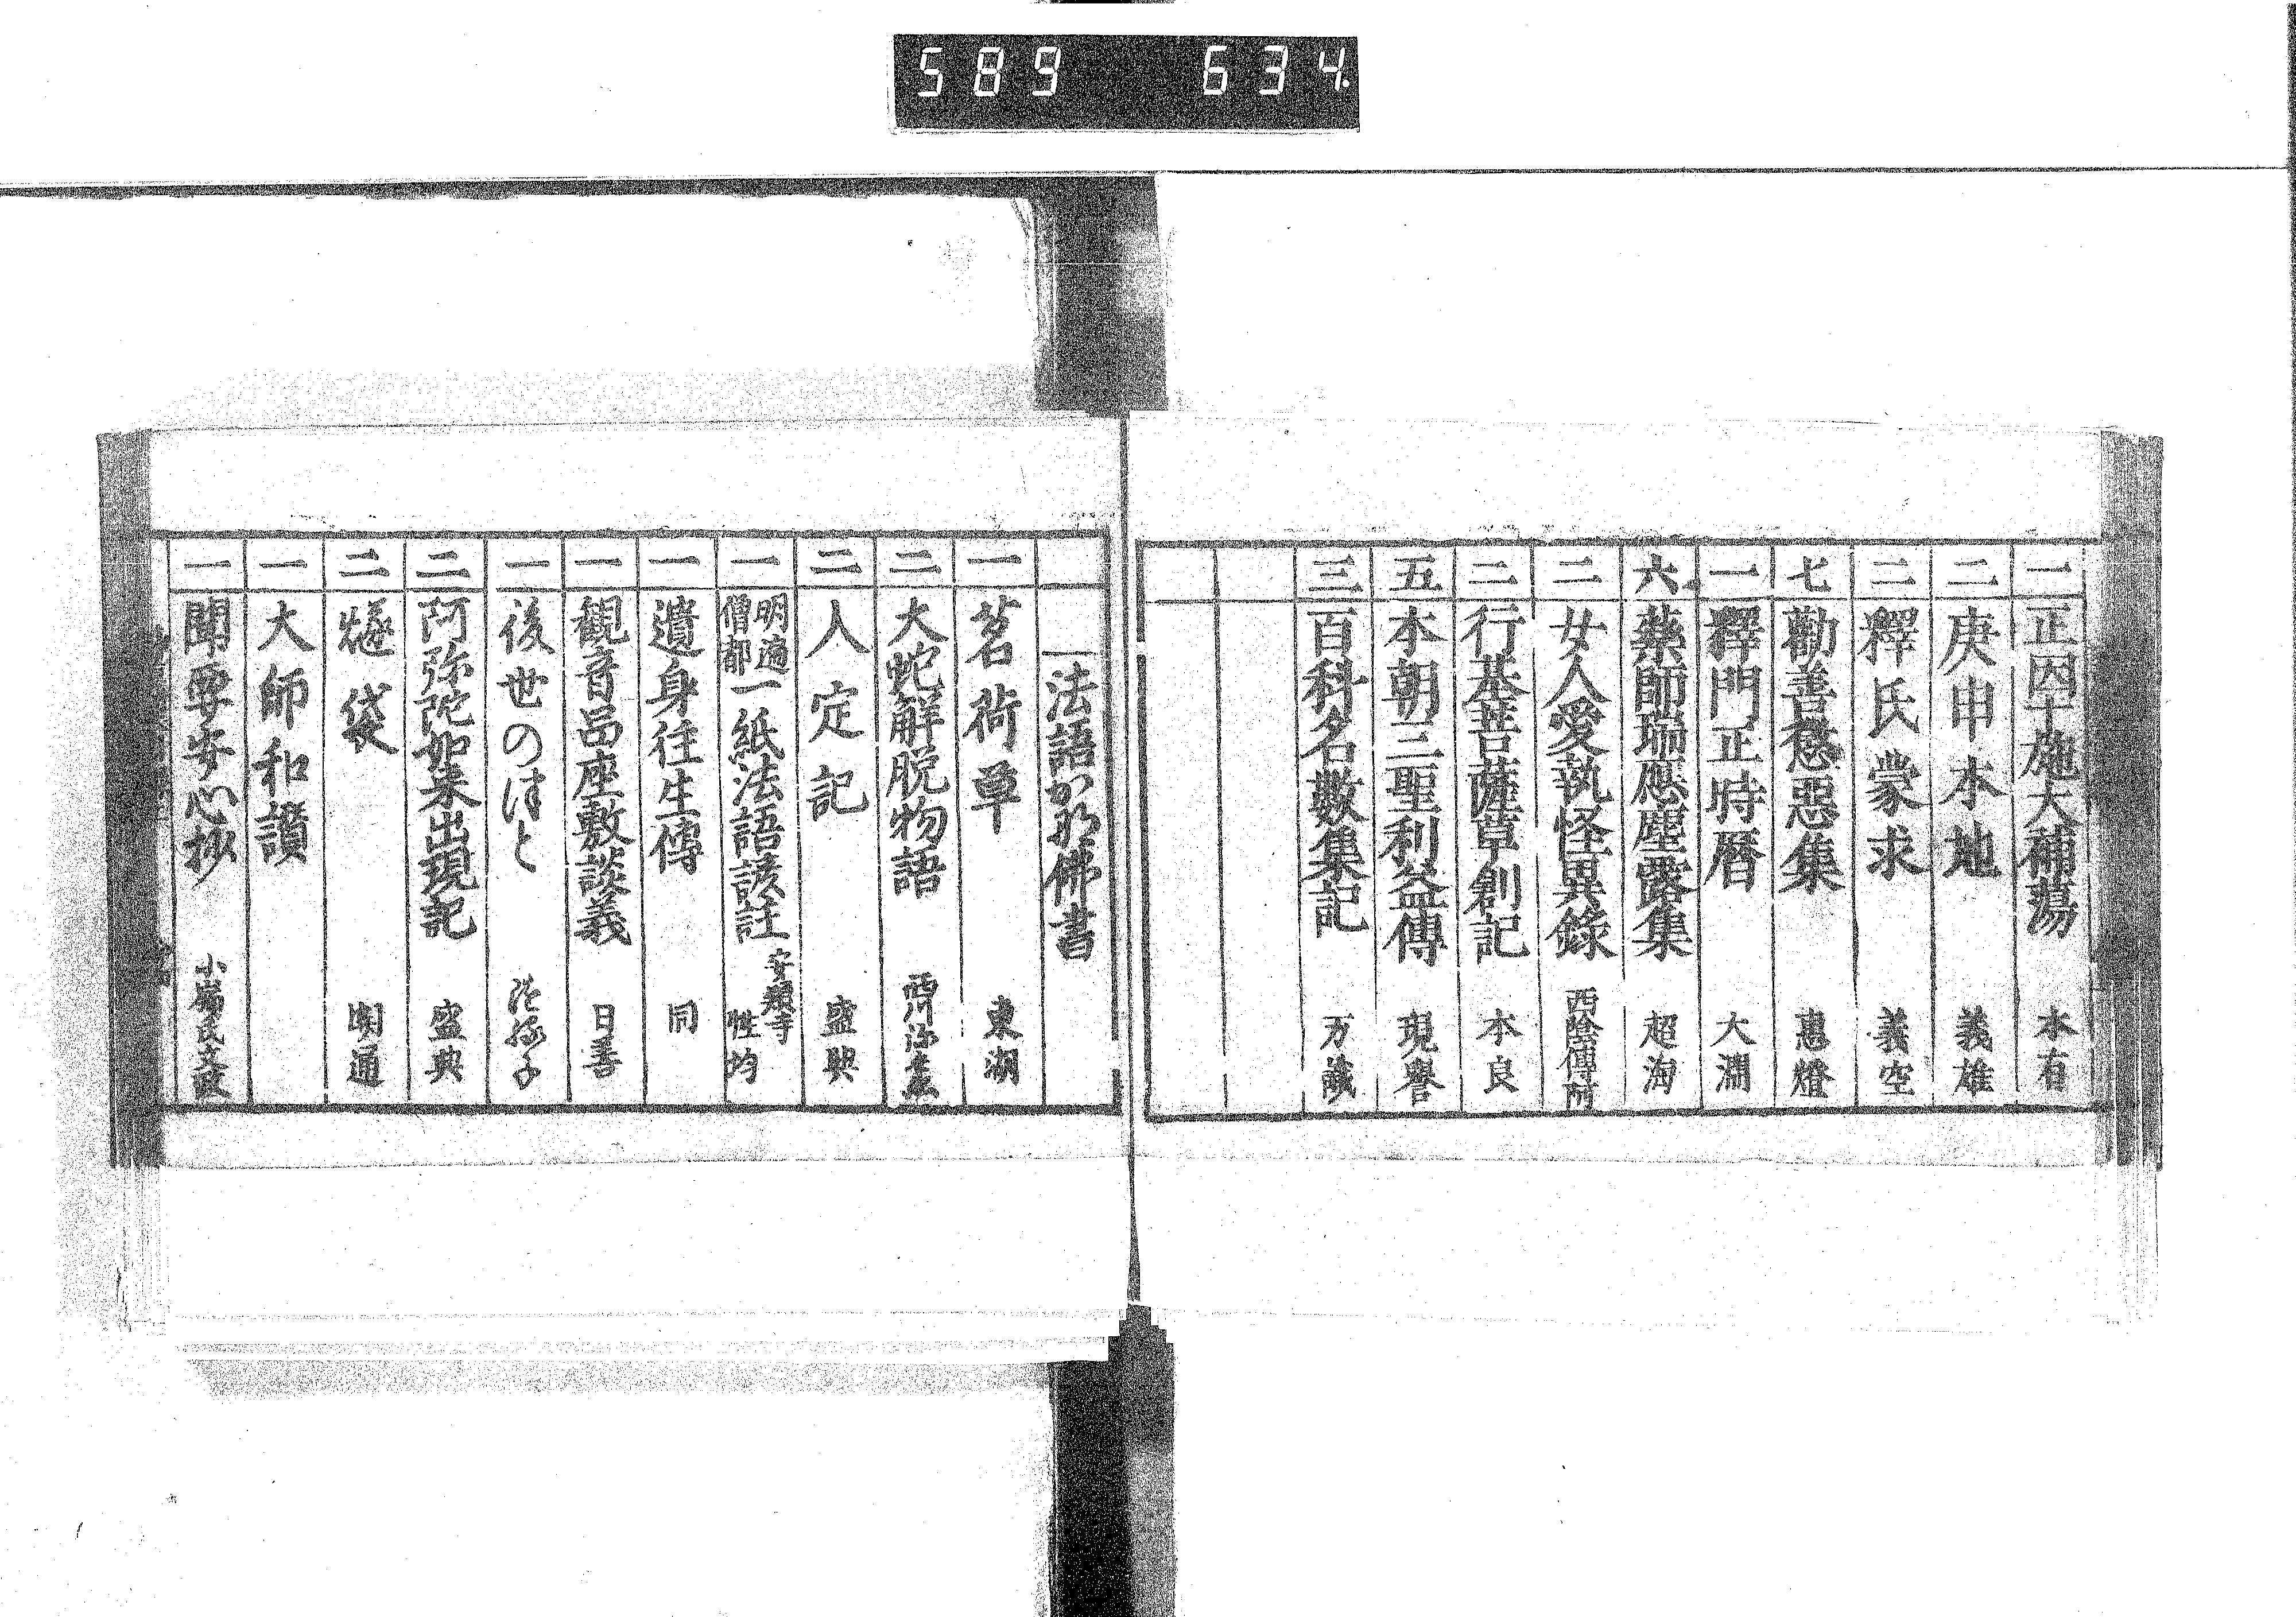 589 634.
一 正因十施大補蕩 本有
二 庚申本地 義雄
二 釋氏蒙求 義空
七 勸善懲惡集 恵燈
一 釋門正時暦 大淵
六 藥師瑞應塵露集 超海
二 女人愛執怪異錄 西陰傳阿
二 行基菩薩草創記 本良
五 本朝三聖利益傳 現譽
三 百科名數集記 万誠
法語かな佛書
一 茗荷草 東湖
二 大蛇解脱物語 西川
二 入定記 盛典
一 明遍僧都一紙法語諺註 安頭寺性均
一 遺身往生傳 同
一 観音品座敷談義 日善
一 後世のはと
二 阿弥陀如来出現記 盛典
二 袋 関通
一 大師和讃
一 聞要安心抄 小嶋氏